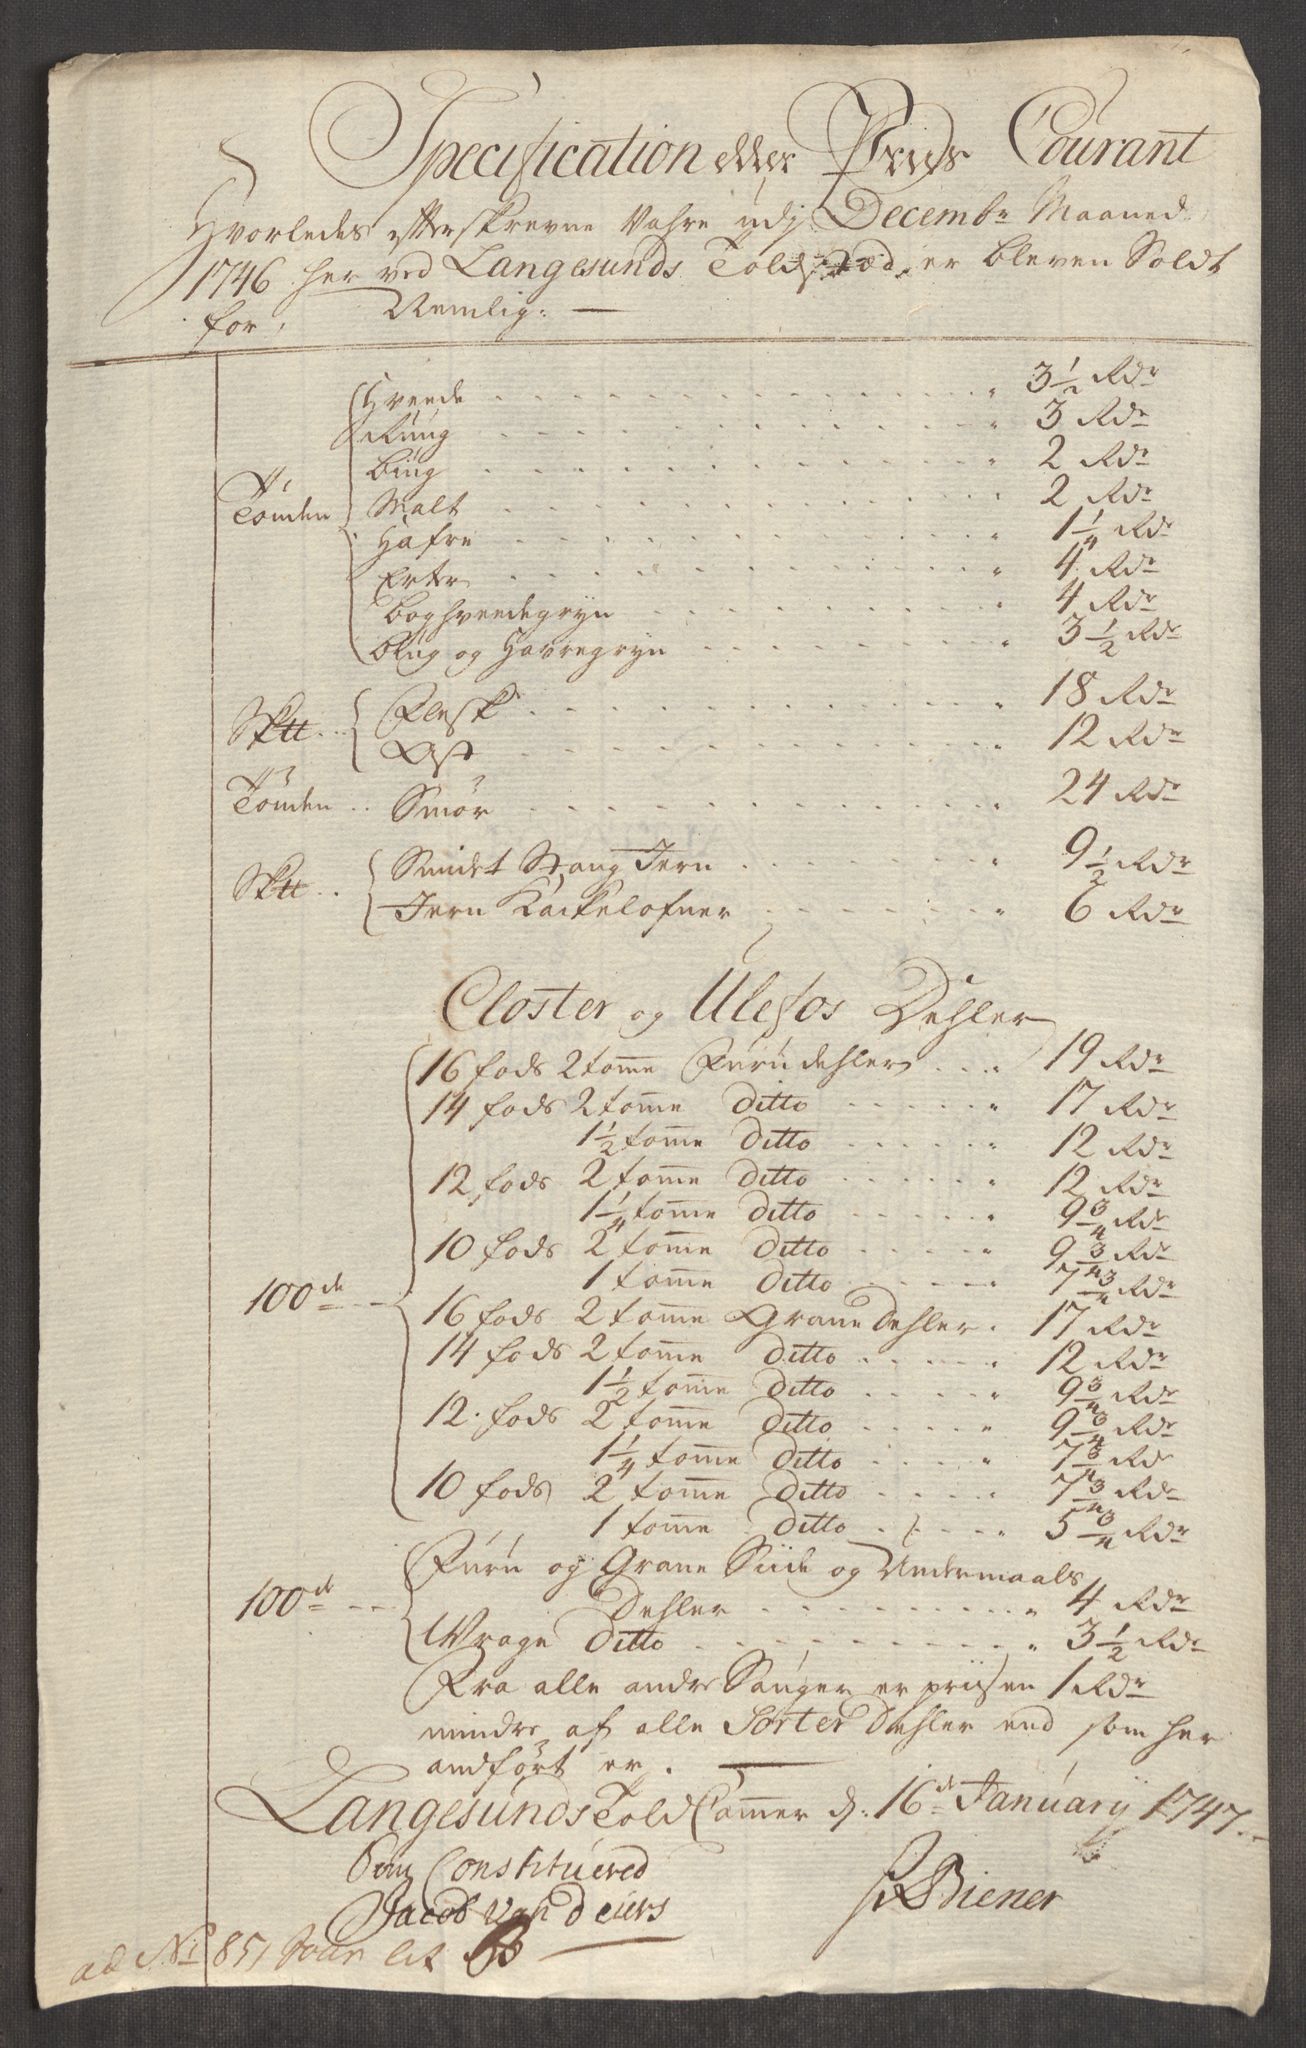 Specification eller Priis Courant
Hvorledes efterskrevne Vahre udj Decembr Maaned
1746 her ved Langesunds Toldstæd er bleven Soldt
for, Nemlig: —
Hveede 3½ Rdr
Rúúg 3 Rdr
Biúg 2 Rdr
Tönden Malt 2 Rdr
Hafre 1¼ Rdr
Erter 4 Rdr
Boghveedegryn 4 Rdr
Biúg og Havregryn 3½ Rdr
Sk℔ Flesk 18 Rdr
Ost 12 Rdr
Tönden Smör 24 Rdr
Sk℔ Smidet Stang Jern 9½ Rdr
Jern Kackelofner 6 Rdr
Closter og Ulefos Dehler
16 fods 2 tom̄e Fúrú dehler 19 Rdr
14 fods 2 tom̄e Ditto 17 Rdr
1½ tom̄e Ditto 12 Rdr
12 fods 2 tom̄e Ditto 12 Rdr
1¼ tom̄e Ditto 9¾ Rdr
10 fods 2 tom̄e Ditto 9¾ Rdr
1 tom̄e Ditto 7¾ Rdr
100de 16 fods 2 tom̄e Grane Dehler 17 Rdr
14 fods 2 tom̄e Ditto 12 Rdr
1½ tom̄e Ditto 9¾ Rdr
12. fods 2 tom̄e Ditto 9¾ Rdr
1¼ tom̄e Ditto 7¾ Rdr
10 fods 2 tom̄e Ditto 7¾ Rdr
1 tom̄e Ditto 5¾ Rdr
Fúrú og Grane Siide og Undermaals
100de Dehler 4 Rdr
Vrage Ditto 3½ Rdr
Fra alle andre Sauger er priisen 1 Rdr
mindre af alle Sorter Dehler end som her
andfört er. —
Langesunds Told Cam̄er d: 16de Janúarij 1747.
Constitúered
Jacob van Deúrs
Biener
ad No 851 lit B